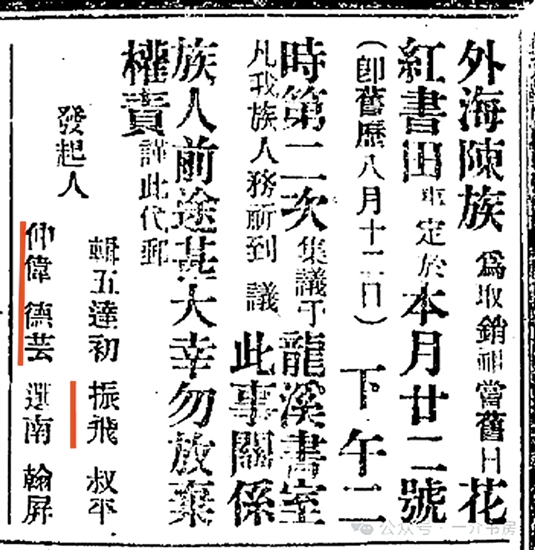 外海陳族 爲取銷祖嘗舊日花
紅書田事定於本月廿二號
（卽舊歷八月十二日）下午二
時第二次集議于龍溪書室
凡我族人務祈到議 此事關係
族人前途甚大幸勿放棄
權責謹此代郵
發起人
輯五 達初 振飛 叔平
仲偉 德芸 南 翰屏
公众号 · 一介书房